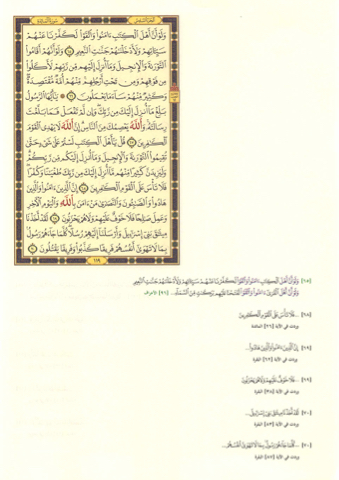 وَلَوْ أَنَّ أَهْلَ الْكِتَابِ ءَامَنُوا وَاتَّقَوْا لَكَفَّرْنَا عَنْهُمْ
سَيِّئَاتِهِمْ وَلَأَدْخَلْنَاهُمْ جَنَّاتِ النَّعِيمِ ۝٦٥ وَلَوْ أَنَّهُمْ أَقَامُوا
التَّوْرَاةَ وَالْإِنجِيلَ وَمَا أُنزِلَ إِلَيْهِم مِّن رَّبِّهِمْ لَأَكَلُوا
مِن فَوْقِهِمْ وَمِن تَحْتِ أَرْجُلِهِم مِّنْهُمْ أُمَّةٌ مُّقْتَصِدَةٌ
وَكَثِيرٌ مِّنْهُمْ سَاءَ مَا يَعْمَلُونَ ۝٦٦ يَاأَيُّهَا الرَّسُولُ
بَلِّغْ مَا أُنزِلَ إِلَيْكَ مِن رَّبِّكَ وَإِن لَّمْ تَفْعَلْ فَمَا بَلَّغْتَ
رِسَالَتَهُ وَاللَّهُ يَعْصِمُكَ مِنَ النَّاسِ إِنَّ اللَّهَ لَا يَهْدِي الْقَوْمَ
الْكَافِرِينَ ۝٦٧ قُلْ يَاأَهْلَ الْكِتَابِ لَسْتُمْ عَلَى شَيْءٍ حَتَّى
تُقِيمُوا التَّوْرَاةَ وَالْإِنجِيلَ وَمَا أُنزِلَ إِلَيْكُم مِّن رَّبِّكُمْ
وَلَيَزِيدَنَّ كَثِيرًا مِّنْهُم مَّا أُنزِلَ إِلَيْكَ مِن رَّبِّكَ طُغْيَانًا وَكُفْرًا
فَلَا تَأْسَ عَلَى الْقَوْمِ الْكَافِرِينَ ۝٦٨ إِنَّ الَّذِينَ ءَامَنُوا وَالَّذِينَ
هَادُوا وَالصَّابِئُونَ وَالنَّصَارَى مَنْ ءَامَنَ بِاللَّهِ وَالْيَوْمِ الْآخِرِ
وَعَمِلَ صَالِحًا فَلَا خَوْفٌ عَلَيْهِمْ وَلَا هُمْ يَحْزَنُونَ ۝٦٩ لَقَدْ أَخَذْنَا
مِيثَاقَ بَنِي إِسْرَائِيلَ وَأَرْسَلْنَا إِلَيْهِمْ رُسُلًا كُلَّمَا جَاءَهُمْ رَسُولٌ
بِمَا لَا تَهْوَى أَنفُسُهُمْ فَرِيقًا كَذَّبُوا وَفَرِيقًا يَقْتُلُونَ ۝٧٠
١١٩
(٦٥) وَلَوْ أَنَّ أَهْلَ الْكِتَابِ ءَامَنُوا وَاتَّقَوْا لَكَفَّرْنَا عَنْهُمْ سَيِّئَاتِهِمْ وَلَأَدْخَلْنَاهُمْ جَنَّاتِ النَّعِيمِ
وَلَوْ أَنَّ أَهْلَ الْقُرَى ءَامَنُوا وَاتَّقَوْا لَفَتَحْنَا عَلَيْهِم بَرَكَاتٍ مِّنَ السَّمَاءِ... (٩٦) الأعراف
(٦٨) ...فَلَا تَأْسَ عَلَى الْقَوْمِ الْكَافِرِينَ
(٦٩) إِنَّ الَّذِينَ ءَامَنُوا وَالَّذِينَ هَادُوا...
وردت في الآية (٦٢) البقرة
(٦٩) ...فَلَا خَوْفٌ عَلَيْهِمْ وَلَا هُمْ يَحْزَنُونَ
وردت في الآية (٣٨) البقرة
(٧٠) لَقَدْ أَخَذْنَا مِيثَاقَ بَنِي إِسْرَائِيلَ...
(٧٠) ...كُلَّمَا جَاءَهُمْ رَسُولٌ بِمَا لَا تَهْوَى أَنفُسُهُمْ...
وردت في الآية (٨٧) البقرة